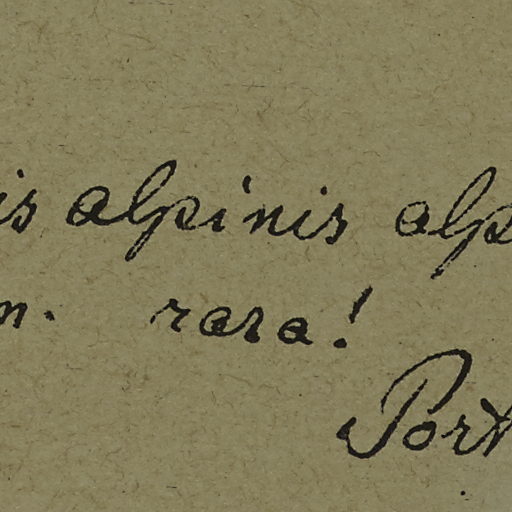 is alpinis alp
m. rara!
Port